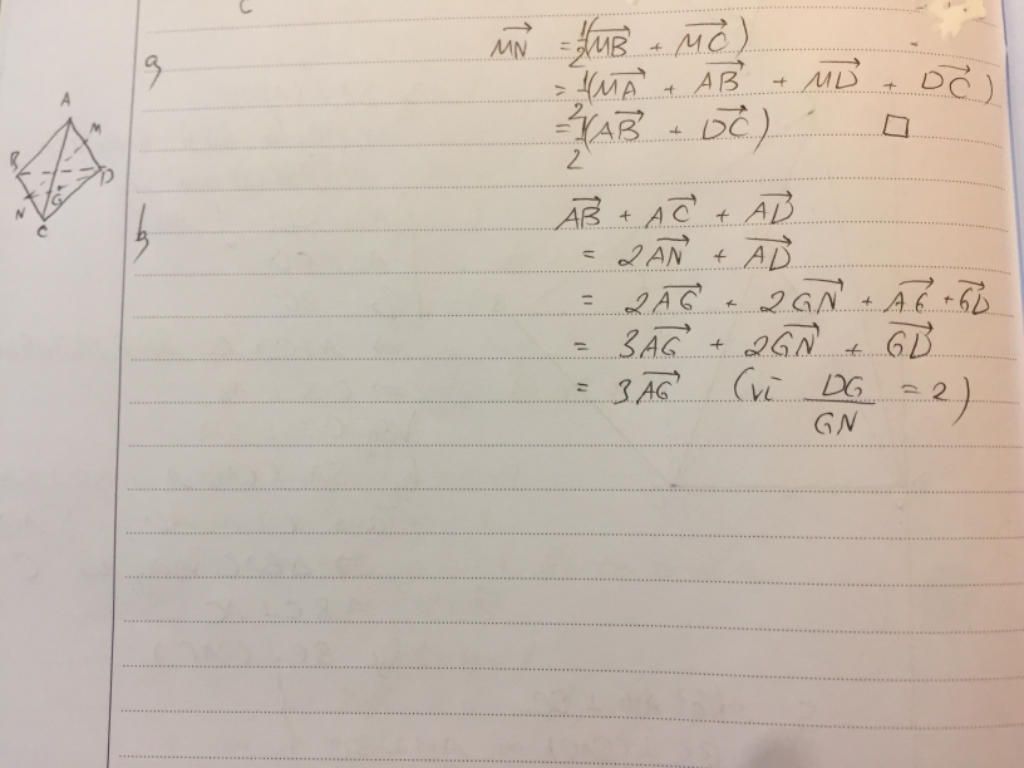 C
a) $\overrightarrow{MN} = \frac{1}{2}(\overrightarrow{MB} + \overrightarrow{MC})$
$= \frac{1}{2}(\overrightarrow{MA} + \overrightarrow{AB} + \overrightarrow{MD} + \overrightarrow{DC})$
$= \frac{1}{2}(\overrightarrow{AB} + \overrightarrow{DC})$ □
A
M
B
D
G
N
C
b) $\overrightarrow{AB} + \overrightarrow{AC} + \overrightarrow{AD}$
$= 2\overrightarrow{AN} + \overrightarrow{AD}$
$= 2\overrightarrow{AG} + 2\overrightarrow{GN} + \overrightarrow{AG} + \overrightarrow{GD}$
$= 3\overrightarrow{AG} + 2\overrightarrow{GN} + \overrightarrow{GD}$
$= 3\overrightarrow{AG}$ (vì $\frac{DG}{GN} = 2$)